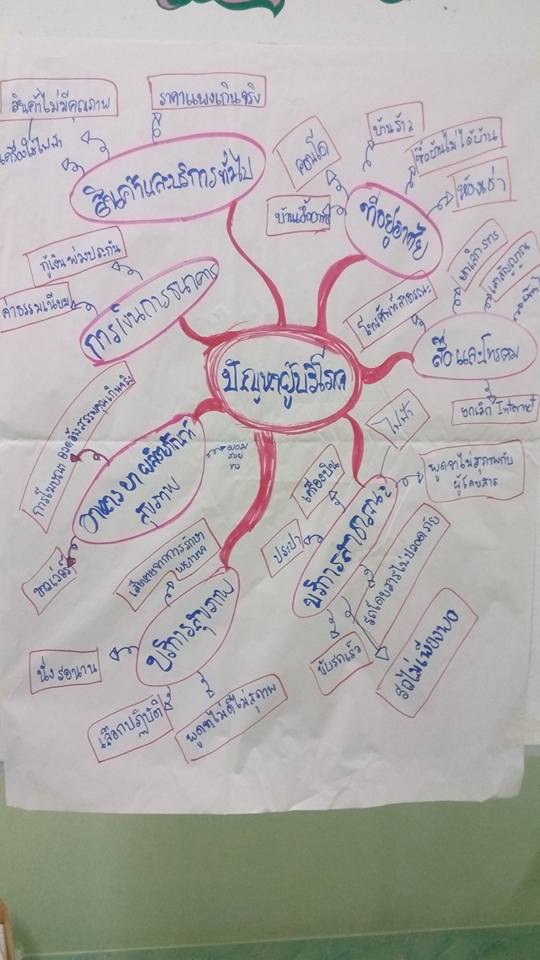 ปัญหาผู้บริโภค
สินค้าและบริการทั่วไป
สินค้าไม่มีคุณภาพ
เครื่องใช้ไฟฟ้า
ราคาแพงเกินจริง
ที่อยู่อาศัย
คอนโด
บ้านร้าว
ซื้อบ้านไม่ได้บ้าน
ห้องเช่า
บ้านเอื้ออาทร
การเงินการธนาคาร
กู้เงินพ่วงประกัน
ค่าธรรมเนียม
สื่อและโทรคม
โทรศัพท์สาธารณะ
ยกเลิก Internet
อาหาร ยา ผลิตภัณฑ์
สุขภาพ
การโฆษณา อวดอ้างสรรพคุณเกินจริง
บริการสาธารณะ
ไฟฟ้า
เครื่องบิน
ประปา
พูดจาไม่สุภาพกับ
ผู้โดยสาร
รถโดยสารไม่ปลอดภัย
รถไม่เพียงพอ
ขับรถเร็ว
บริการสุขภาพ
เสียหายจากการรักษา
พยาบาล
นั่งรอนาน
เลือกปฏิบัติ
พูดจาไม่ดีไม่สุภาพ